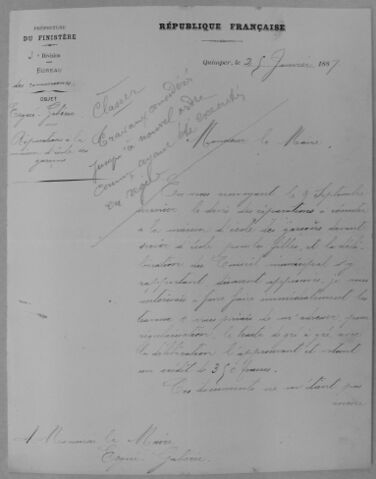 PRÉFECTURE
DU FINISTÈRE
2e Division
BUREAU
des communes
OBJET
Ergué-Gabéric
Réparations à la
maison d'école des
garçons
RÉPUBLIQUE FRANÇAISE
Quimper, le 25 Janvier 1887
Classer
Travaux considérés
jusqu'à nouvel ordre
comme ayant été exécutés
en régie
Monsieur le Maire,
En vous renvoyant le 9 Septembre
dernier le devis des réparations à exécuter
à la maison d'école des garçons devant
servir d'école pour les filles, et la déli-
bération du Conseil municipal s'y
rapportant dûment approuvés, je vous
autorisais à faire faire immédiatement les
travaux et vous priais de m'adresser, pour
régularisation, le traité de gré à gré, avec
la délibération l'approuvant et votant
un crédit de 356 francs.
Ces documents ne m'étant pas
encore
A Monsieur le Maire
Ergué-Gabéric